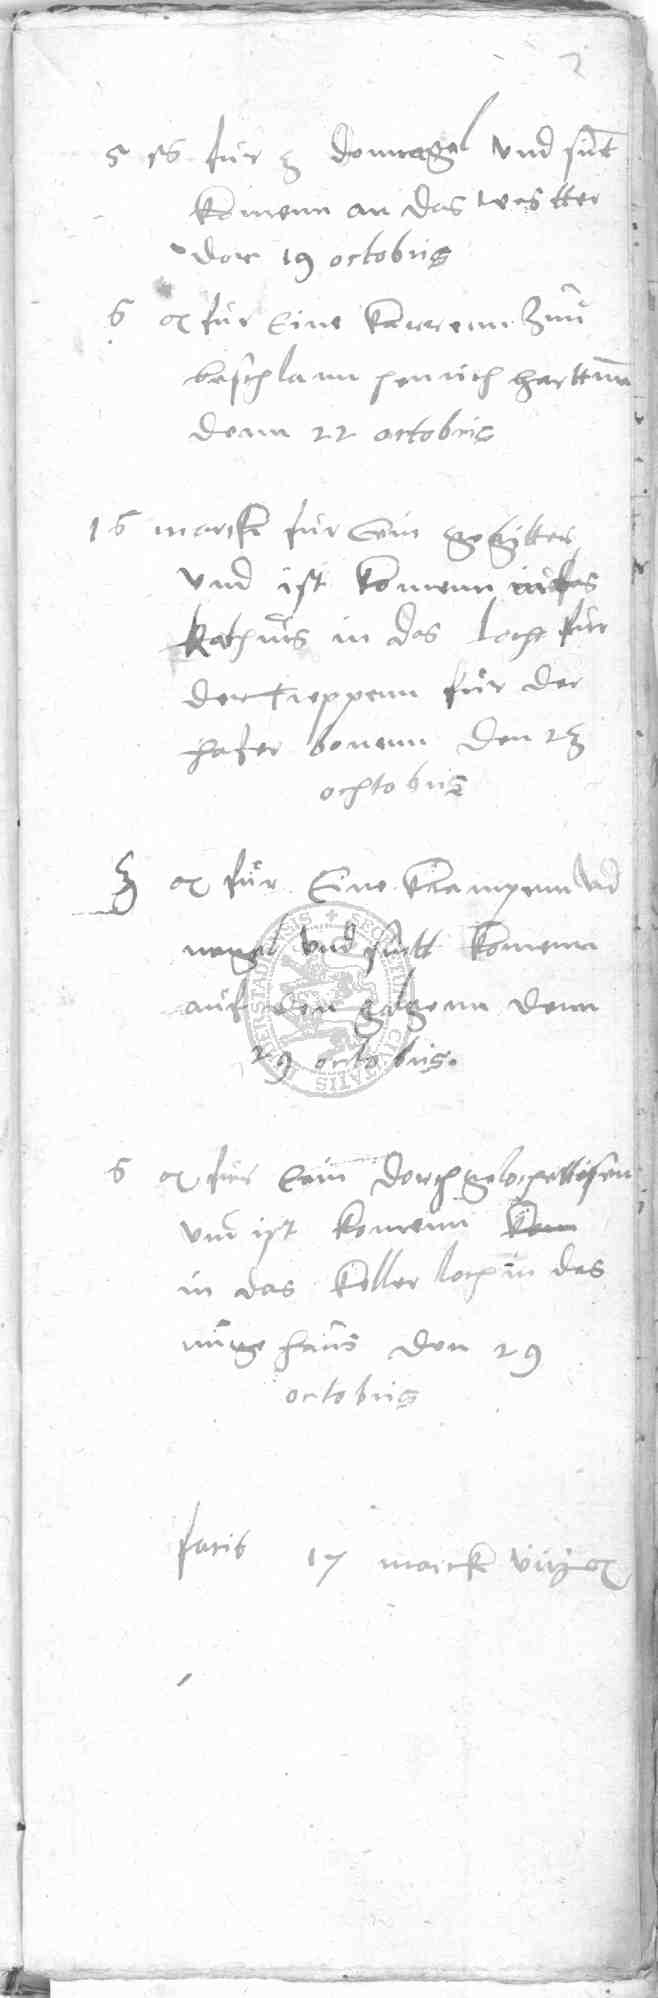 2
5 ß für 3 donnagel vnd sint
komenn an das westter
dor 19 octobris
6 ꝙ für Eine karrenn Zuü
beschlann henrich harttman
denn 22 octobris
16 marck für Ein gegitter
vnd ist komenn in das
Rathuis in das loch für
der treppenn für der
hafer bonenn den 23
ochtobris
3 ꝙ für Eine krampenn vnd
nagel vnd sintt komenn
auf den galgenn denn
29 octobris.
SECRETUM CIVITATIS
6 ꝙ für Ein dorchgelochett isen
vnd ist komenn
in das keller loch in das
nuge haus den 29
octobris
facit 17 marck viiij ꝙ